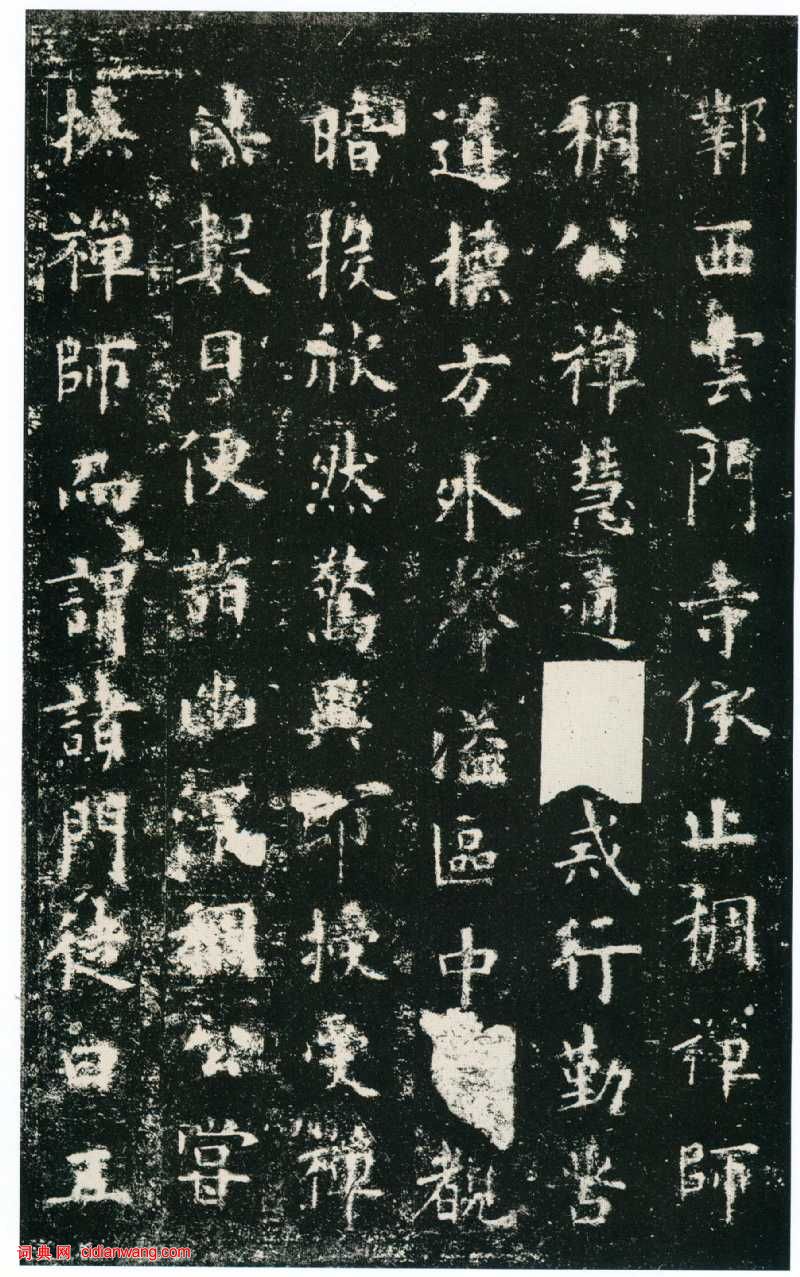 鄴西雲門寺依止稠禪師
稠公禪慧通戒行勤苦
道標方外溢區中覩
暗投欣然驚異即授受禪
數日便詣幽深稠公嘗
撫禪師而謂諸門徒曰五
词典网 cidianwang.com